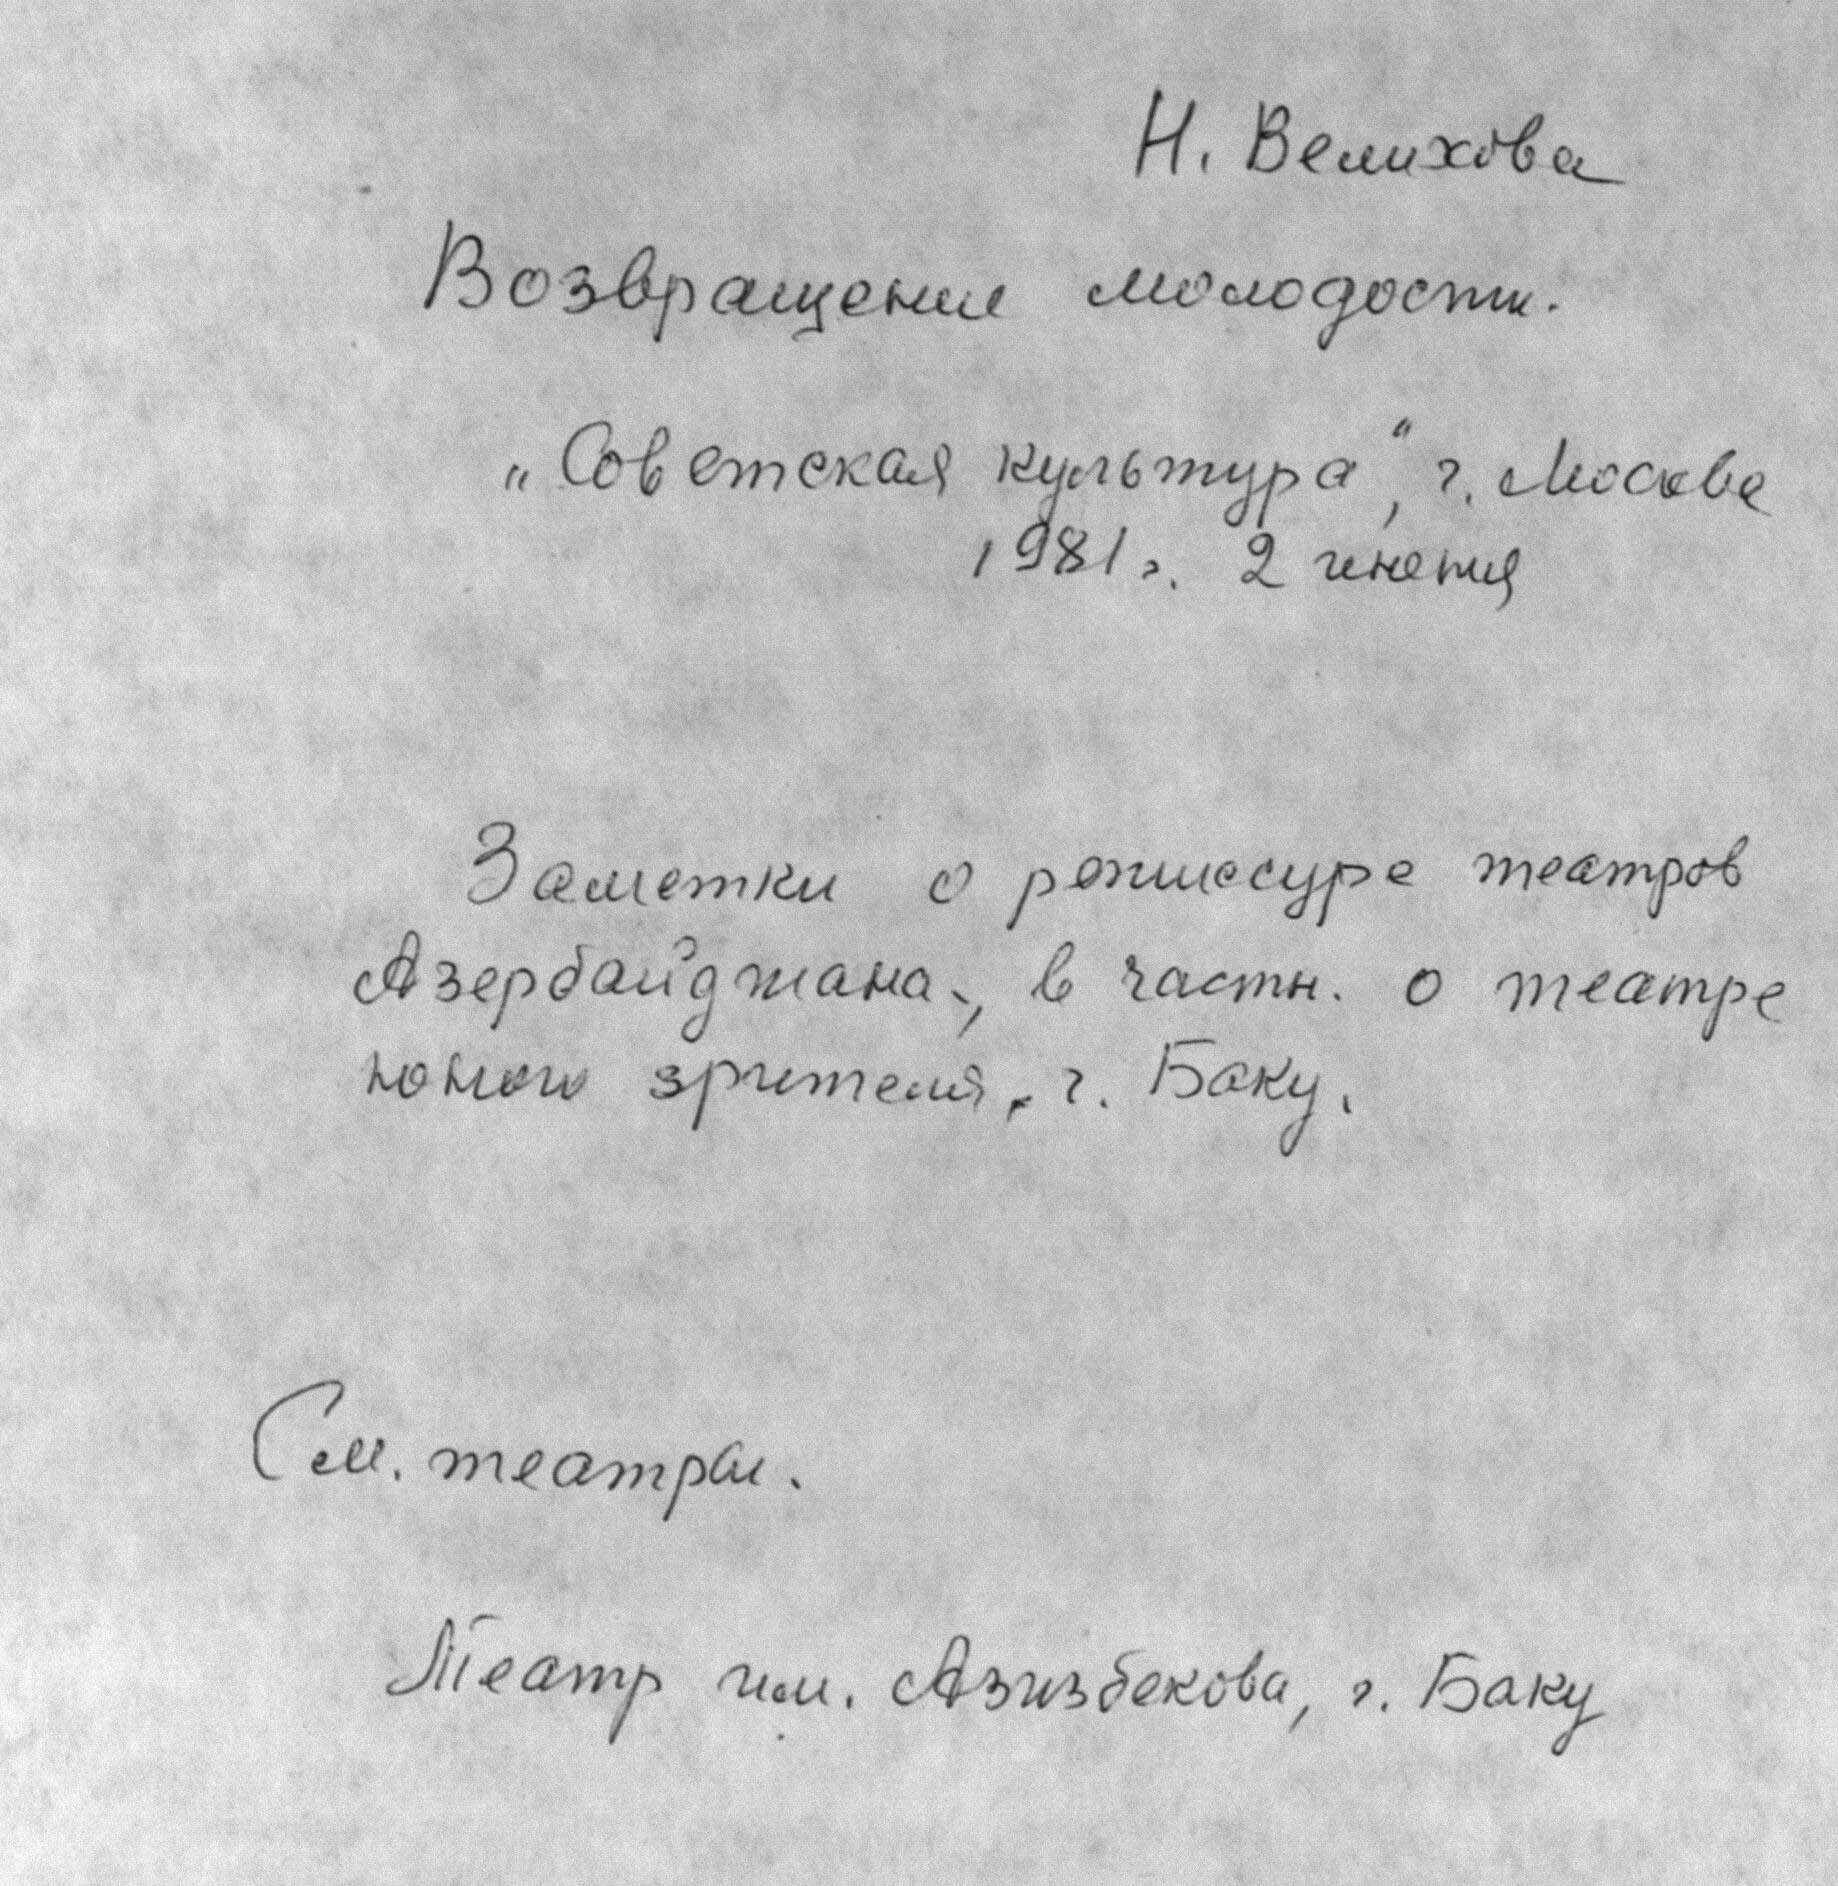 Н. Велихова
Возвращение молодости.
„Советская культура“, г. Москва
1981 г. 2 июня
Заметки о режиссуре театров
Азербайджана, в частн. о театре
юного зрителя, г. Баку.
См. театры.
Театр им. Азизбекова, г. Баку